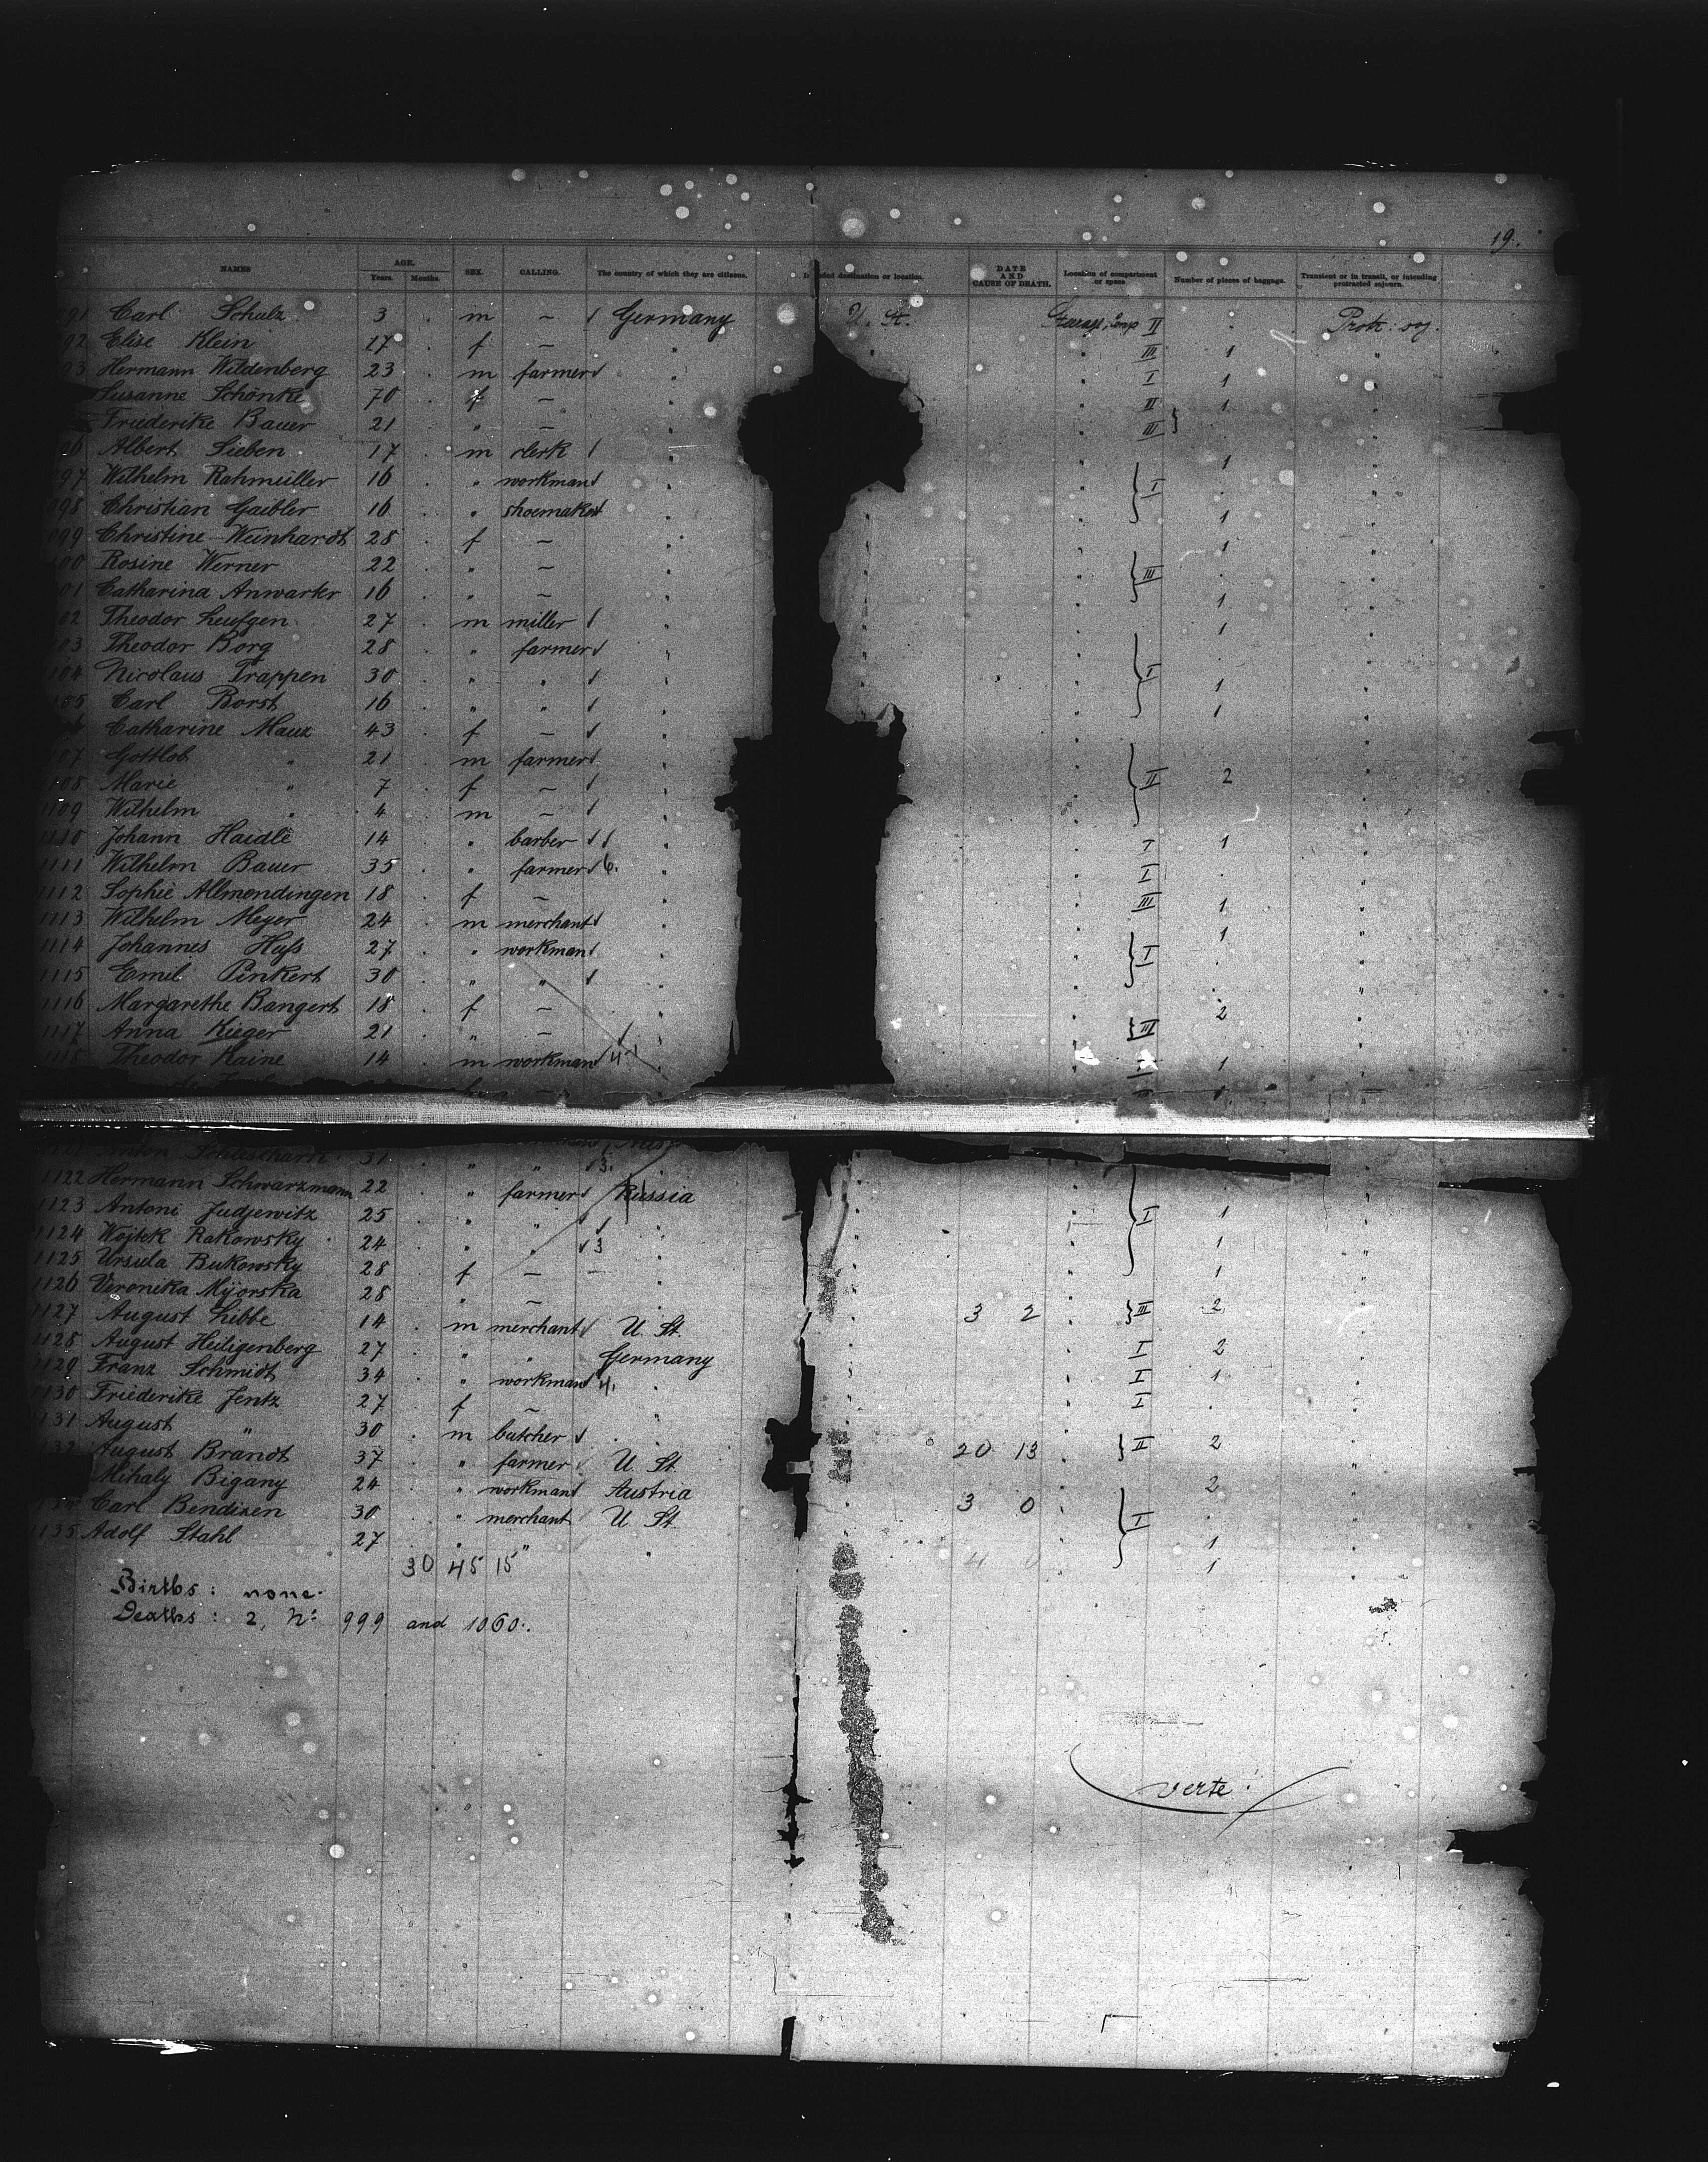 19.
NAMES AGE. Years. Months. SEX. CALLING. The country of which they are citizens. destination or location. DATE AND CAUSE OF DEATH. Location of compartment or space Number of pieces of baggage. Transient or in transit, or intending protracted sojourn.
91 Carl Schulz 3 . m – Germany U. St. II . Protr. soj.
92 Elise Klein 17 . f – " III 1 "
93 Hermann Wildenberg 23 . m farmer " I 1
Susanne Schönke 70 . f – II 1
Friederike Bauer 21 . " – " III
96 Albert Sieben 17 . m clerk " 1 "
97 Wilhelm Rahmüller 16 . " workman " I .
098 Christian Gaibler 16 . " shoemaker " 1
099 Christine Weinhardt 28 . f – " 1 "
100 Rosine Werner 22 . " – " III .
01 Catharina Anwarter 16 . " – " 1
02 Theodor Leufgen 27 . m miller " 1
03 Theodor Borg 28 . " farmer " .
104 Nicolaus Trappen 30 . " " " I 1
105 Carl Borst 16 . " " " 1
Catharine Mauz 43 . f – "
107 Gottlob " 21 . m farmer "
108 Marie " 7 . f – " II 2
1109 Wilhelm " 4 . m – "
1110 Johann Haidle 14 . " barber " I 1
1111 Wilhelm Bauer 35 . " farmer 6. " I .
1112 Sophie Allmendingen 18 . f – III 1
1113 Wilhelm Meyer 24 . m merchant " 1
1114 Johannes Hufs 27 . " workman " I .
1115 Emil Pinkert 30 . " " " .
1116 Margarethe Bangert 18 . f – " 2
1117 Anna Kieger 21 . " – " III
1118 Theodor Kaine 14 . m workman 4 " I 1
31 . " " 3.
1122 Hermann Schwarzmann 22 . " farmer Russia
1123 Antoni Judjewitz 25 . " " " I 1
1124 Wojtek Rakowsky 24 . " " 3 " 1
1125 Ursula Bukowsky 28 . f – " 1
1126 Veronika Mÿorska 28 . " – "
1127 August Libbe 14 . m merchant U. St. 3 2 III 2
1128 August Heiligenberg 27 . " " Germany I 2
1129 Franz Schmidt 34 . " workman 4. " I 1
1130 Friederike Jentz 27 . f – " I .
1131 August " 30 . m butcher .
1132 August Brandt 37 . " farmer U. St. 20 13 II 2
Mihaly Bigany 24 . " workman Austria 2
Carl Bendixen 30 . " merchant U. St. 3 0 I .
1135 Adolf Stahl 27 . " " " 4 0 1
30 45 15 1
Births : none.
Deaths : 2, No 999 and 1060.
verte!